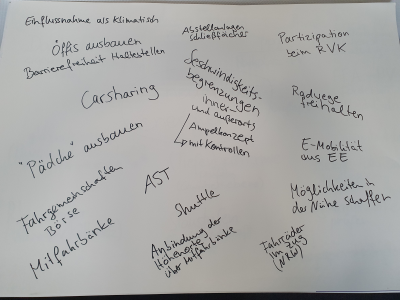 Einflussnahme als Klimatisch
Öffis ausbauen
Barrierefreiheit Haltestellen
Carsharing
"Pädche" ausbauen
Fahrgemeinschaften
Börse
Mitfahrbänke
Abstellanlagen
Schließfächer
Geschwindigkeits-
begrenzungen
inner-
und außerorts
Ampelkonzept
mit Kontrollen
AST
Shuttle
Anbindung der
Höhenorte
über Mitfahrbänke
Partizipation
beim RVK
Radwege
freihalten
E-Mobilität
aus EE
Möglichkeiten in
der Nähe schaffen
Fahrräder
im Zug
(NRW)